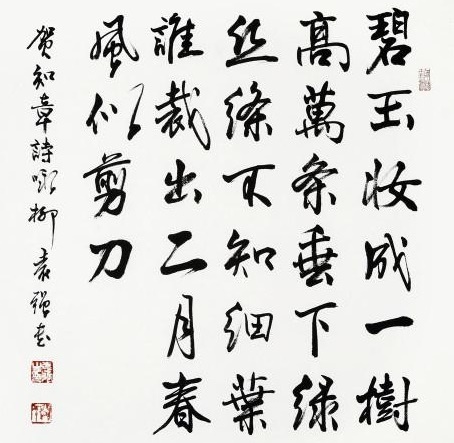 碧玉妆成一樹
高萬条垂下绿
丝绦不知细葉
誰裁出二月春
風似剪刀
賀知章詩咏柳 袁强书